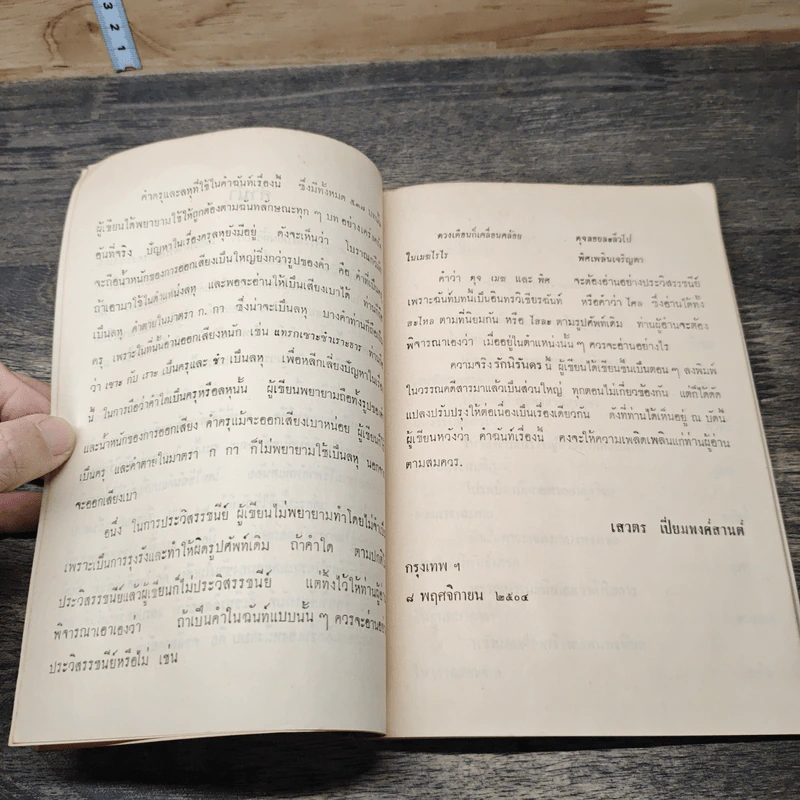 3
2
1
คำครุและลหุที่ใช้ในคำฉันท์เรื่องนี้ ซึ่งมีทั้งหมด ๕๓๗
ผู้เขียนได้พยายามใช้ให้ถูกต้องตามฉันทลักษณะทุก ๆ บท อย่างเคร่งครัด
อันที่จริง ปัญหาในเรื่องครุลหุยังมีอยู่ ดังจะเห็นว่า
จะถือน้ำหนักของการออกเสียงเป็นใหญ่ยิ่งกว่ารูปของคำ คือ คำที่เป็นครุ
ถ้าเอามาใช้ในตำแหน่งลหุ และพอจะอ่านให้เป็นเสียงเบาได้
เป็นลหุ คำตายในมาตรา ก. กา ซึ่งน่าจะเป็นลหุ บางคำท่านก็ถือเป็น
ครุ เพราะในที่นั้นอ่านออกเสียงหนัก เช่น แทรกเซาะชำเราะธาร
ว่า เซาะ กับ เราะ เป็นครุและ ชำ เป็นลหุ เพื่อหลีกเลี่ยงปัญหาในเรื่อง
นี้ ในการถือว่าคำใดเป็นครุหรือลหุนั้น ผู้เขียนพยายามถือทั้งรูปของคำ
และน้ำหนักของการออกเสียง คำครุแม้จะออกเสียงเบาหน่อย ผู้เขียนก็ใช้
เป็นครุ และคำตายในมาตรา ก กา ก็ไม่พยายามใช้เป็นลหุ นอกจาก
จะออกเสียงเบา
อนึ่ง ในการประวิสรรชนีย์ ผู้เขียนไม่พยายามทำโดยไม่จำเป็น
เพราะเป็นการรุงรังและทำให้ผิดรูปศัพท์เดิม ถ้าคำใด ตามปกติไม่
ประวิสรรชนีย์แล้วผู้เขียนก็ไม่ประวิสรรชนีย์ แต่ทิ้งไว้ให้ท่านผู้อ่าน
พิจารณาเอาเองว่า ถ้าเป็นคำในฉันท์แบบนั้น ๆ ควรจะอ่านอย่าง
ประวิสรรชนีย์หรือไม่ เช่น
ดวงเดือนก็เคลื่อนคล้อย ดุจลอยละลิ่วไป
ในเมฆไรไร พิศเพลินเจริญตา
คำว่า ดุจ เมฆ และ พิศ จะต้องอ่านอย่างประวิสรรชนีย์
เพราะฉันท์บทนี้เป็นอินทรวิเชียรฉันท์ หรือคำว่า ไศล ซึ่งอ่านได้ทั้ง
สะไหล ตามที่นิยมกัน หรือ ไสละ ตามรูปศัพท์เดิม ท่านผู้อ่านจะต้อง
พิจารณาเองว่า เมื่ออยู่ในตำแหน่งนั้น ๆ ควรจะอ่านอย่างไร
ความจริง รักนิรันดร นี้ ผู้เขียนได้เขียนขึ้นเป็นตอน ๆ ลงพิมพ์
ในวรรณคดีสารมาแล้วเป็นส่วนใหญ่ ทุกตอนไม่เกี่ยวข้องกัน แต่ก็ได้ดัด
แปลงปรับปรุงให้ต่อเนื่องเป็นเรื่องเดียวกัน ดังที่ท่านได้เห็นอยู่ ณ บัดนี้
ผู้เขียนหวังว่า คำฉันท์เรื่องนี้ คงจะให้ความเพลิดเพลินแก่ท่านผู้อ่าน
ตามสมควร.
เสวตร เปี่ยมพงศ์สานต์
กรุงเทพ ฯ
๘ พฤศจิกายน ๒๕๐๔